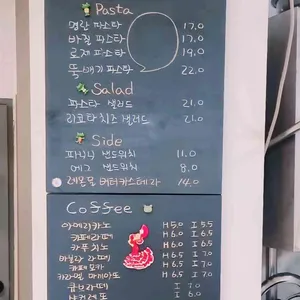 Pasta
명란 파스타 17.0
바질 파스타 17.0
로제 파스타 19.0
뚝배기 파스타 22.0
Salad
파스타 샐러드 21.0
리코타치즈 샐러드 21.0
Side
파니니 샌드위치 11.0
에그 샌드위치 8.0
레몬몽 버터카스테라 14.0
Coffee
아메리카노 H 5.0 I 5.5
카페라떼 H 6.0 I 6.5
카푸치노 H 6.0 I 6.5
바닐라 라떼 H 6.5 I 7.0
카페모카 H 6.5 I 7.0
카라멜 마끼아또 H 6.5 I 7.0
I 7.0
I 6.0